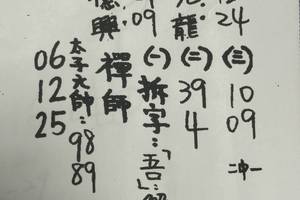 興：09
龍：24
太子大師：98 89
06
12
25
禪師
(一)
拆字：「吾」：
(二)
39
4
(三)
10
09
二中一